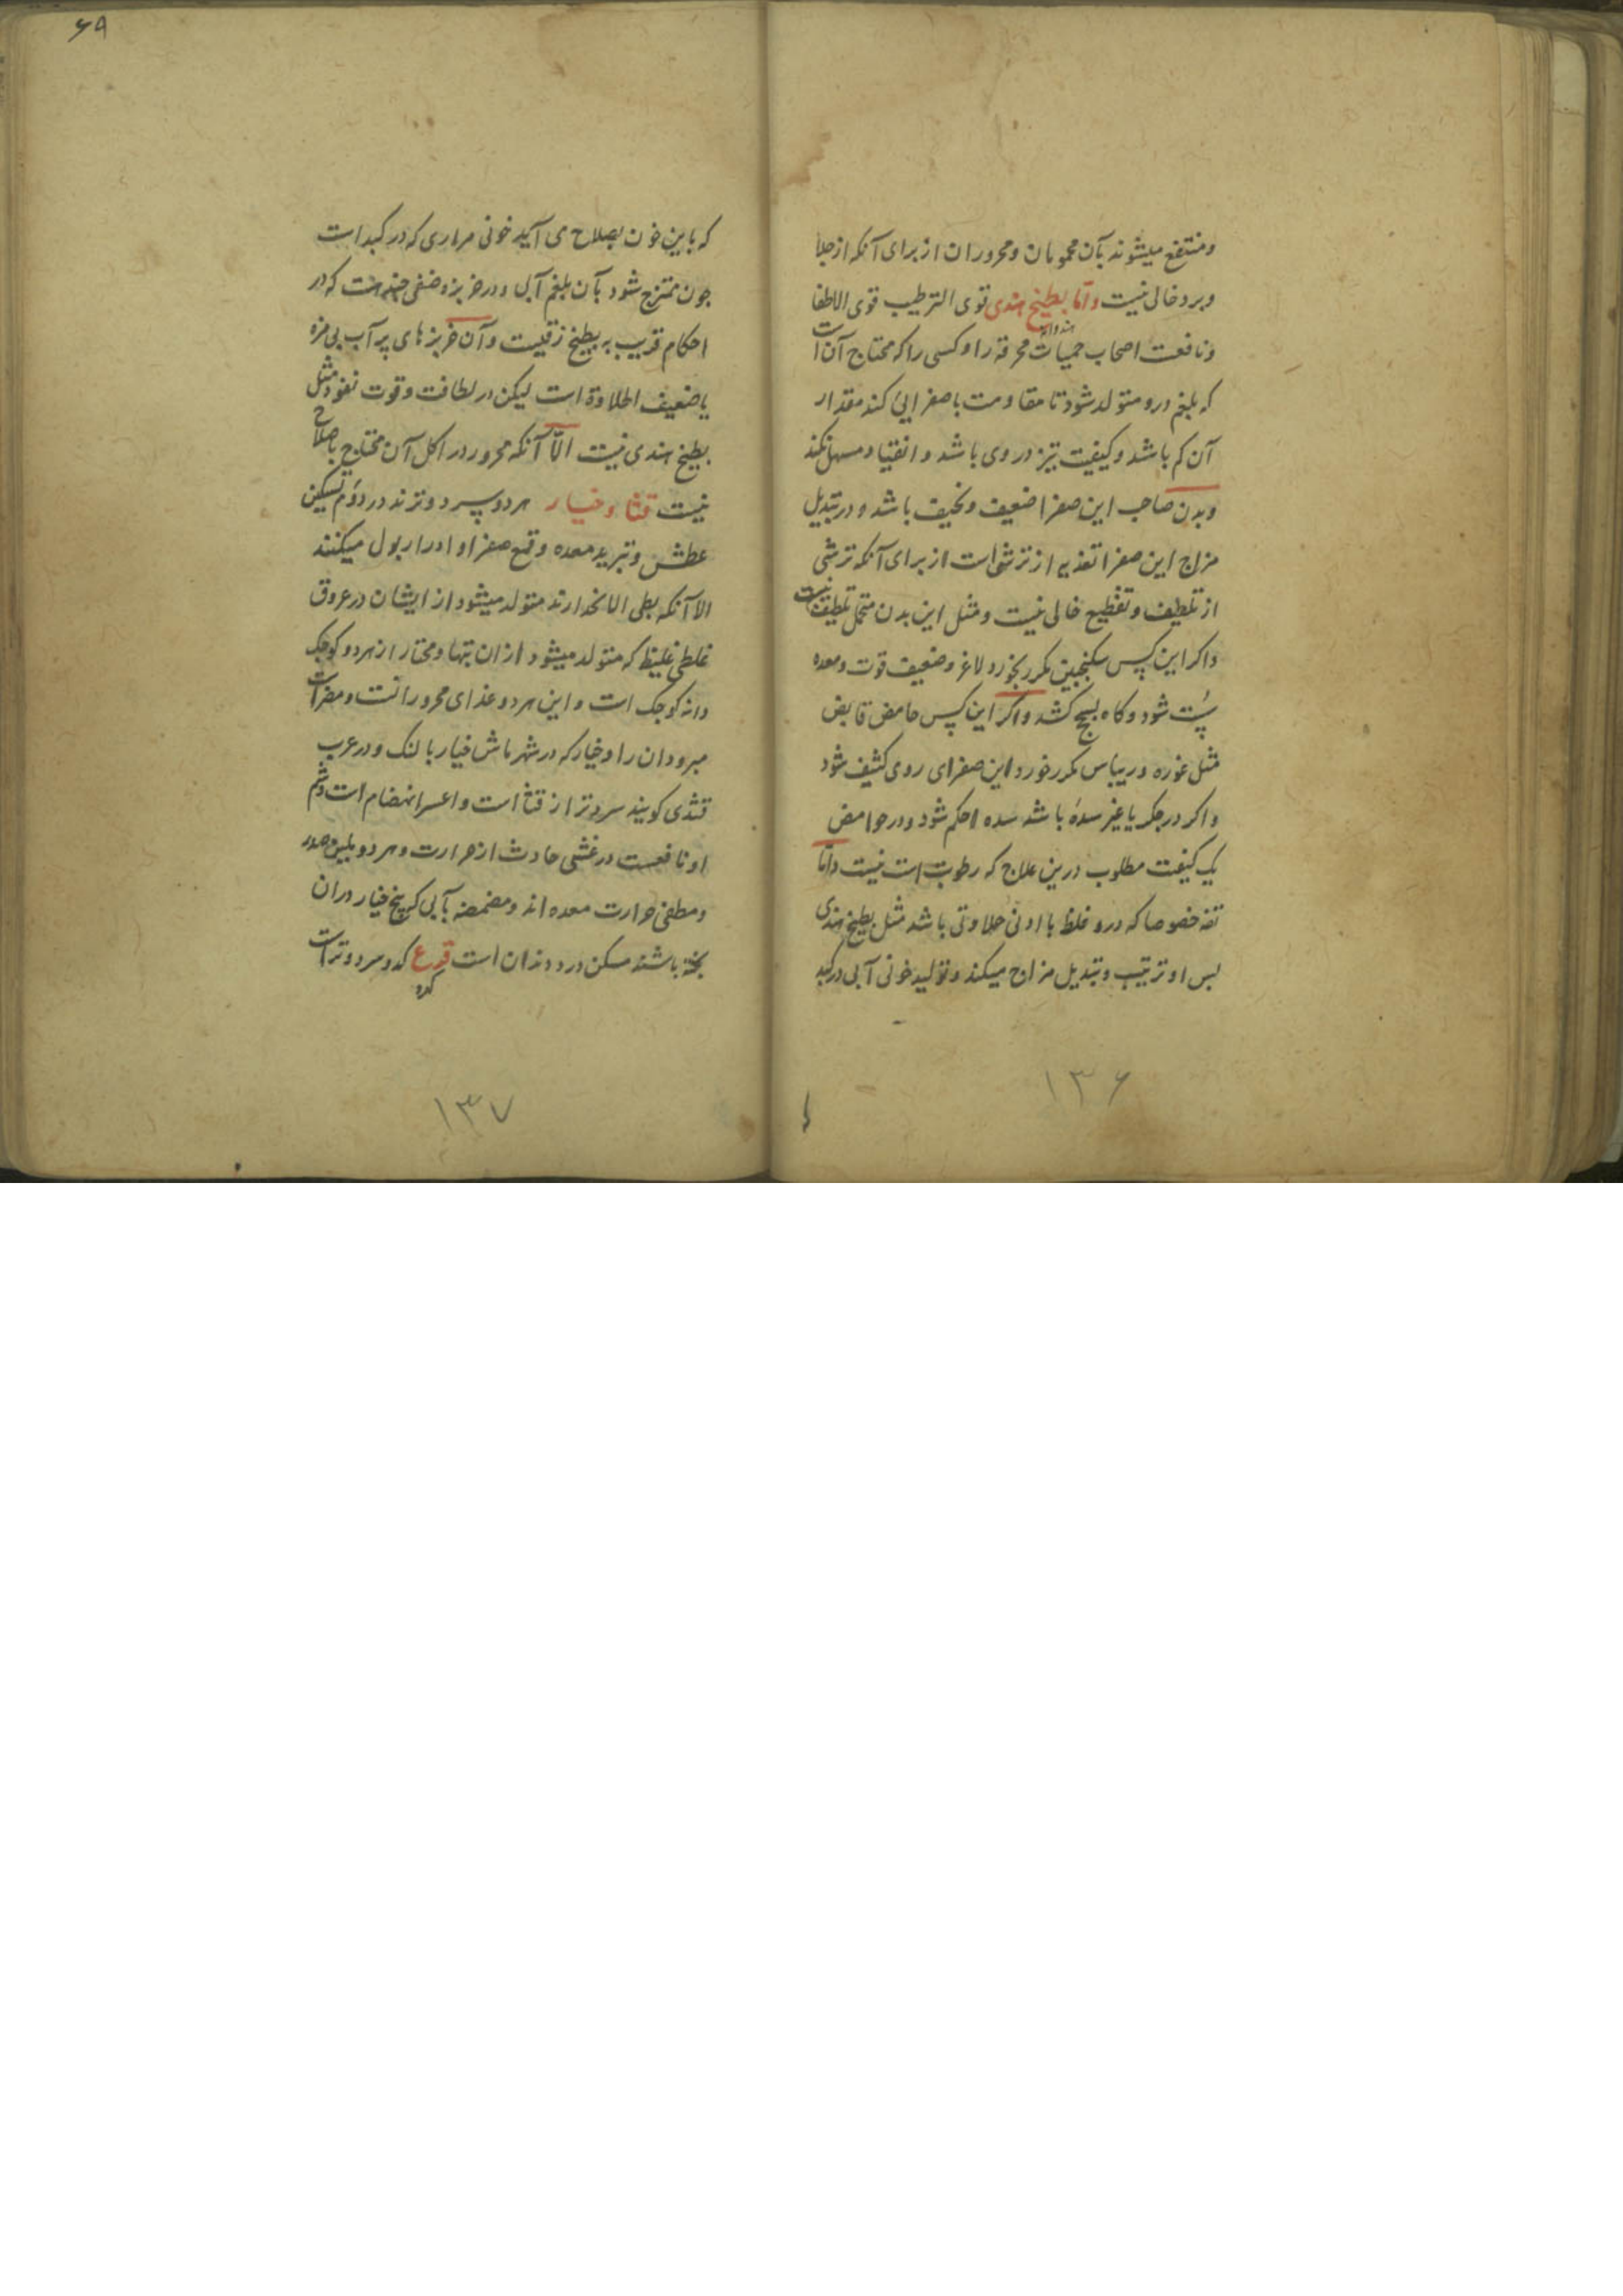 ومنتفع میشوند بآن محمومان ومحروران از برای آنکه از جلا
وبرد خالی نیست واما بطیخ هندی قوی الترطیب قوی الاطفا
هندوانه
ونافعست اصحاب حمیات محرقه را وکسی را که محتاج آن است
که بلغم درو متولد شود تا مقاومت با صفرایی کند مقدار
آن کم باشد وکیفیت تیز در وی باشد و انقیاد مسهل نکند
وبدن صاحب این صفرا ضعیف ونحیف باشد و در تبدیل
مزاج این صفرا تغذیه از ترشی است از برای آنکه ترشی
از تلطیف وتقطیع خالی نیست ومثل این بدن متحمل تلطیف نیست
واکر این کس سکنجبین مکرر بخورد لاغر وضعیف قوت ومعده
سست شود وکاه بسحج کشد واکر این کس حامض قابض
مثل غوره وریباس مکرر خورد این صفرای ردی کثیف شود
واکر در جکر یا غیر سدهٔ باشد سده احکم شود ودر حوامض
یک کیفیت مطلوب درین علاج که رطوبت است نیست واما
تفه خصوصا که درو غلظ با ادنی حلاوتی باشد مثل بطیخ هندی
بس او ترتیب وتبدیل مزاج میکند وتولید خونی آبی در کبد
۱۳۶
۶۹
که باین خون بصلاح می آید خونی مراری که در کبد است
جون ممتزج شود بآن بلغم آبی ودر خربزه صنفی هست که در
احکام قریب به بطیخ زقیست وآن خربزهای پر آب بی مزه
یا ضعیف الحلاوة است لیکن در لطافت وقوت نفوذ مثل
بطیخ هندی نیست الّا آنکه محرور در اکل آن محتاج باصلاح
نیست قثا وخیار هر دو سرد وترند در دوم تسکین
عطش وتبرید معده وقمع صفرا وادرار بول میکنند
الا آنکه بطی الانحدارند متولد میشود از ایشان در عروق
خلطی غلیظ که متولد میشود ازان تبها ومختار از هر دو کوجک
دانه کوجک است و این هر دو غذای محرورانست ومضر است
مبرودان را وخیار که در شهر ماش خیار بالنک ودر عرب
قثدی کویند سردتر از قثا است واعسر انهضام است وشم
او نافعست در غشی حادث از حرارت وهر دو ملین صدر
ومطفی حرارت معده اند ومضمضه بآبی که بیخ خیار دران
بخته باشند مسکن درد دندان است قرع کدو سرد وتر است
کدو
۱۳۷